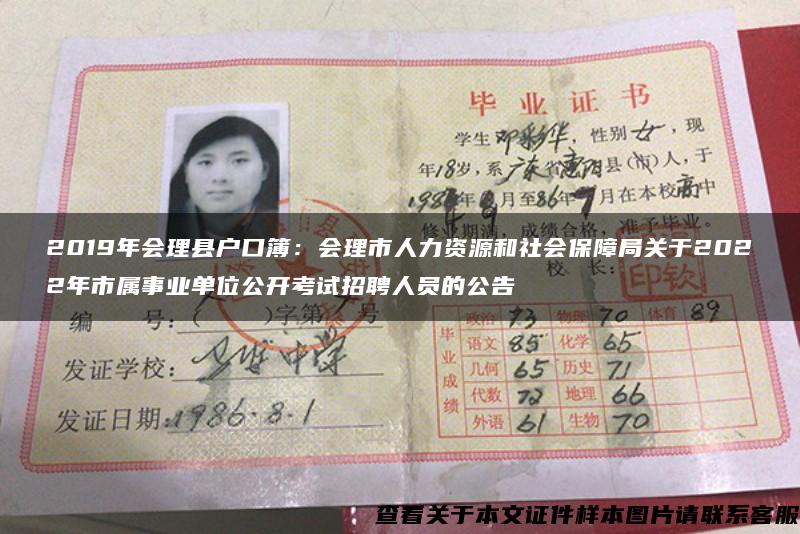 毕业证书
学生邓彩华,性别女,现
年18岁,系广东省惠阳县(市)人,于
1984年9月至86年7月在本校高中
修业期满,成绩合格,准予毕业。
校 长:
印钦
2019年会理县户口簿:会理市人力资源和社会保障局关于202
2年市属事业单位公开考试招聘人员的公告
编 号:( )字第 号
发证学校:
中学
发证日期:1986.8.1
毕业成绩
政治 73 物理 70 体育 89
语文 85 化学 65
几何 65 历史 71
代数 72 地理 66
外语 61 生物 70
查看关于本文证件样本图片请联系客服